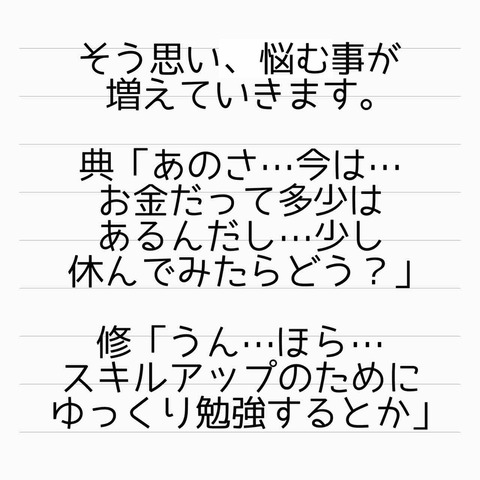 そう思い、悩む事が
増えていきます。
典「あのさ…今は…
お金だって多少は
あるんだし…少し
休んでみたらどう？」
修「うん…ほら…
スキルアップのために
ゆっくり勉強するとか」